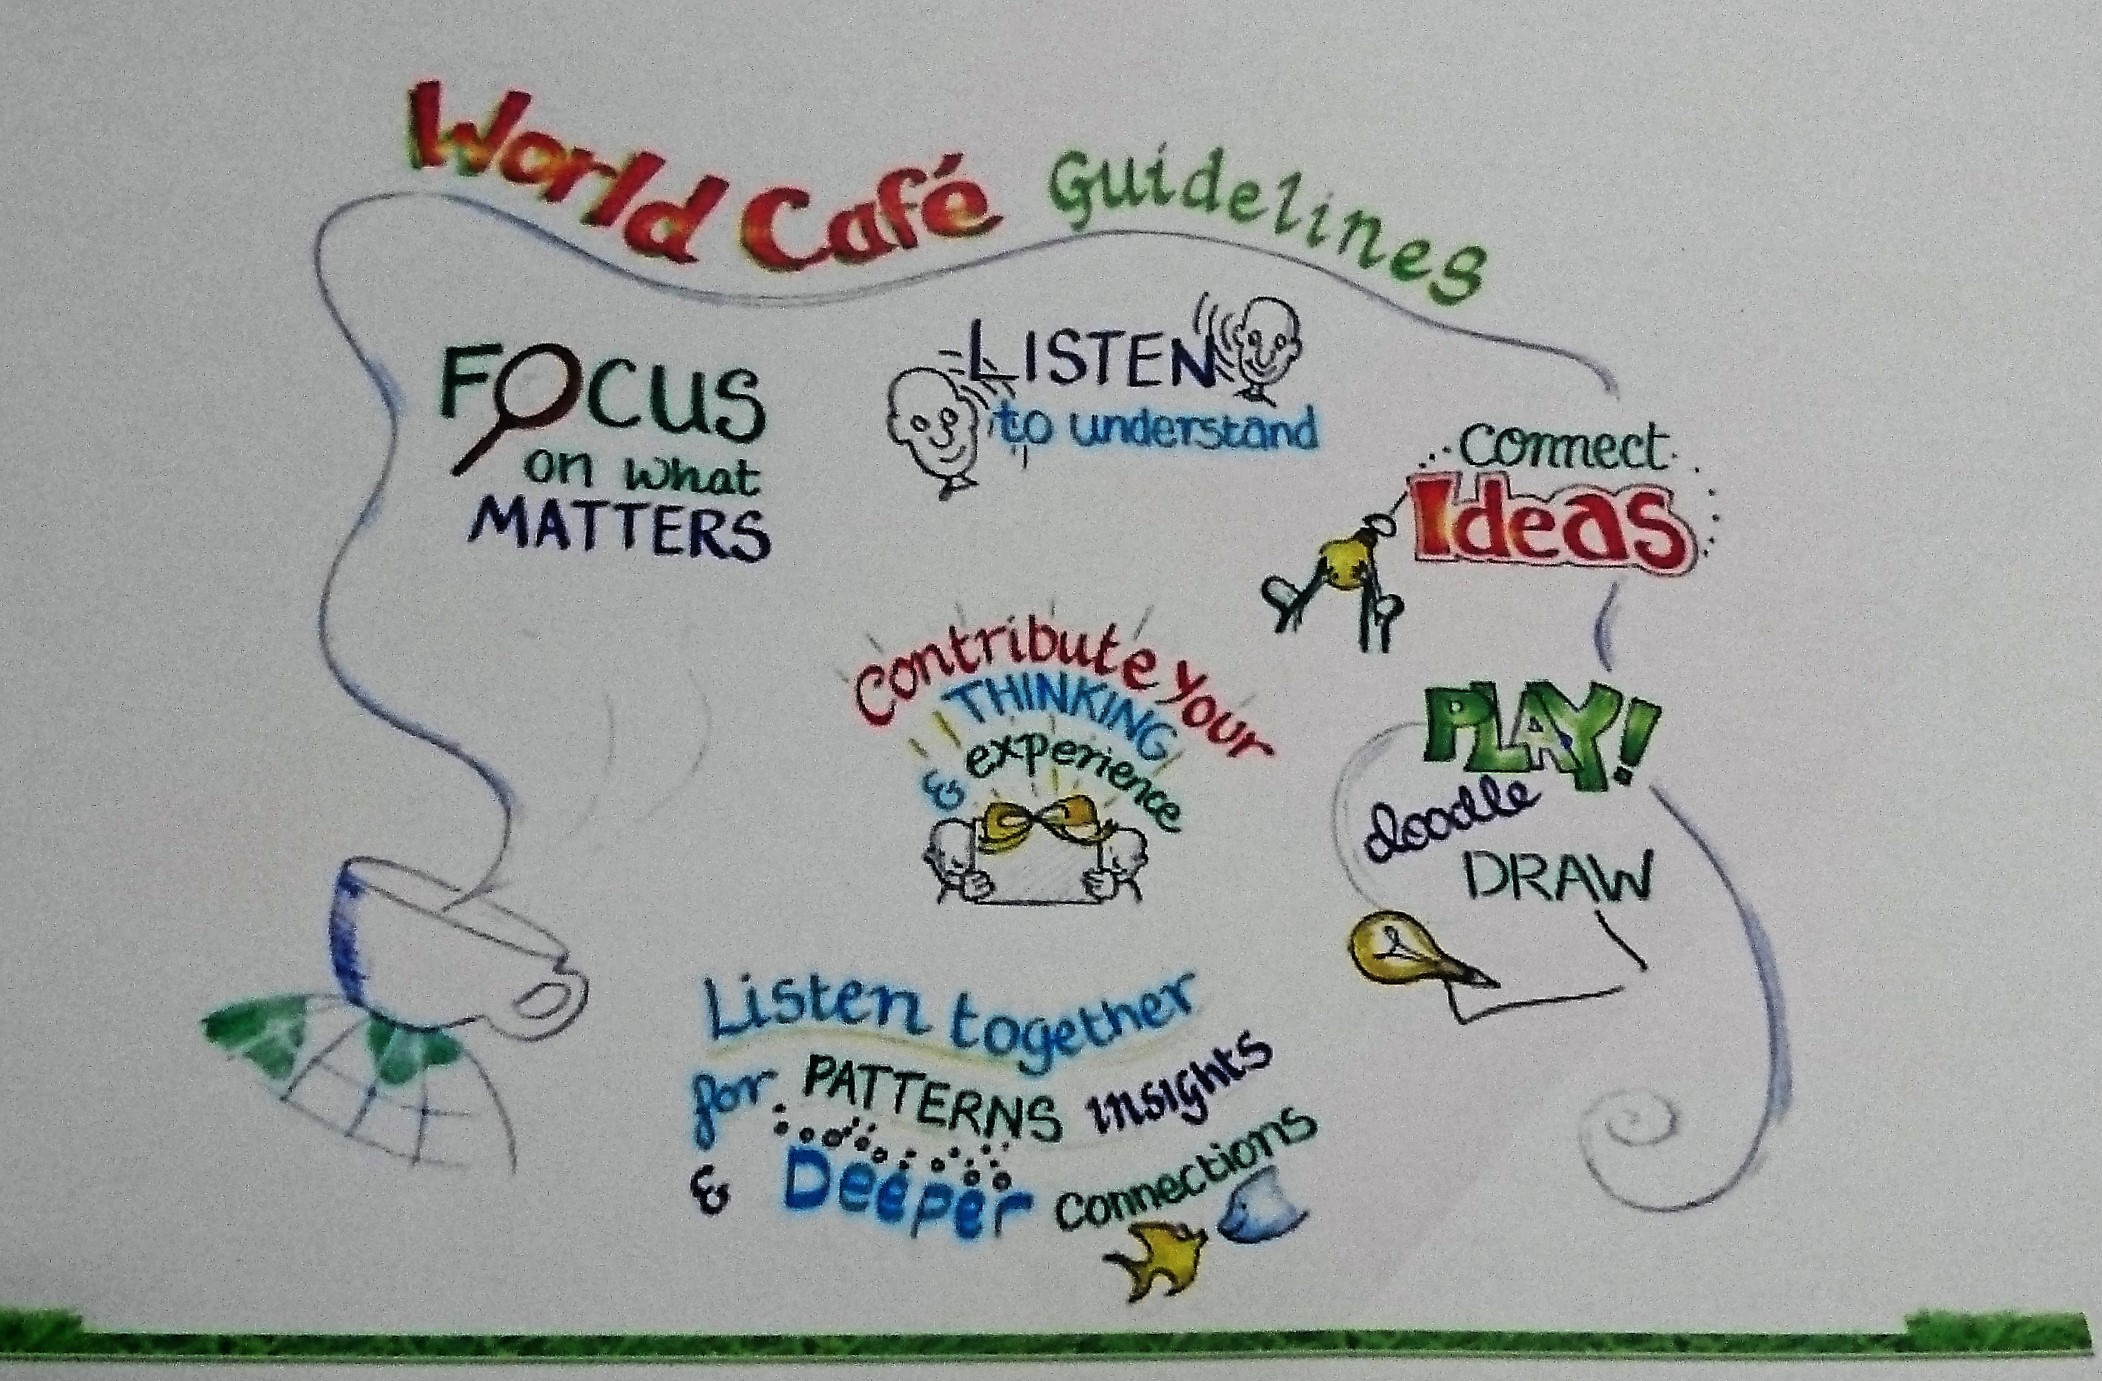 World Café Guidelines
FOCUS
on what
MATTERS
LISTEN
to understand
connect
Ideas
Contribute Your
THINKING
& experience
PLAY!
doodle
DRAW
Listen together
for PATTERNS insights
& Deeper connections